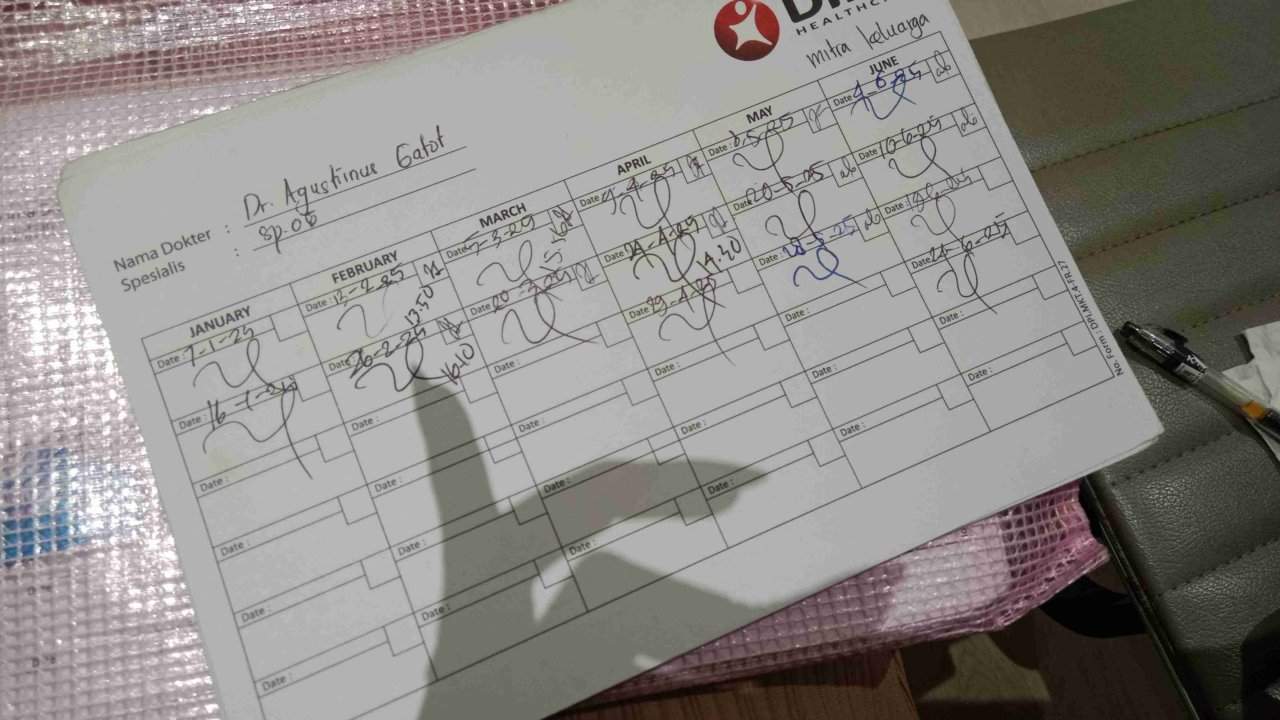 HEALTHC
mitra keluarga
Nama Dokter : Dr. Agustinus Gatot
Spesialis : Sp.OG
JANUARY
Date : 7-1-25
Date : 16-1-25
Date :
Date :
Date :
Date :
FEBRUARY
Date : 12-2-25
13.50
Date : 26-2-25
16.10
Date :
Date :
Date :
Date :
MARCH
Date : 5-3-25
Date : 20-3-25
Date :
Date :
Date :
Date :
APRIL
Date : 9-4-25
Date : 24-4-25
14.20
Date : 29-4-25
Date :
Date :
Date :
MAY
Date : 6-5-25
Date : 20-5-25
Date : 28-5-25
Date :
Date :
Date :
JUNE
Date : 4-6-25
Date : 10-6-25
Date :
Date :
Date :
No. Form : DPI.MKT-4-FR.27